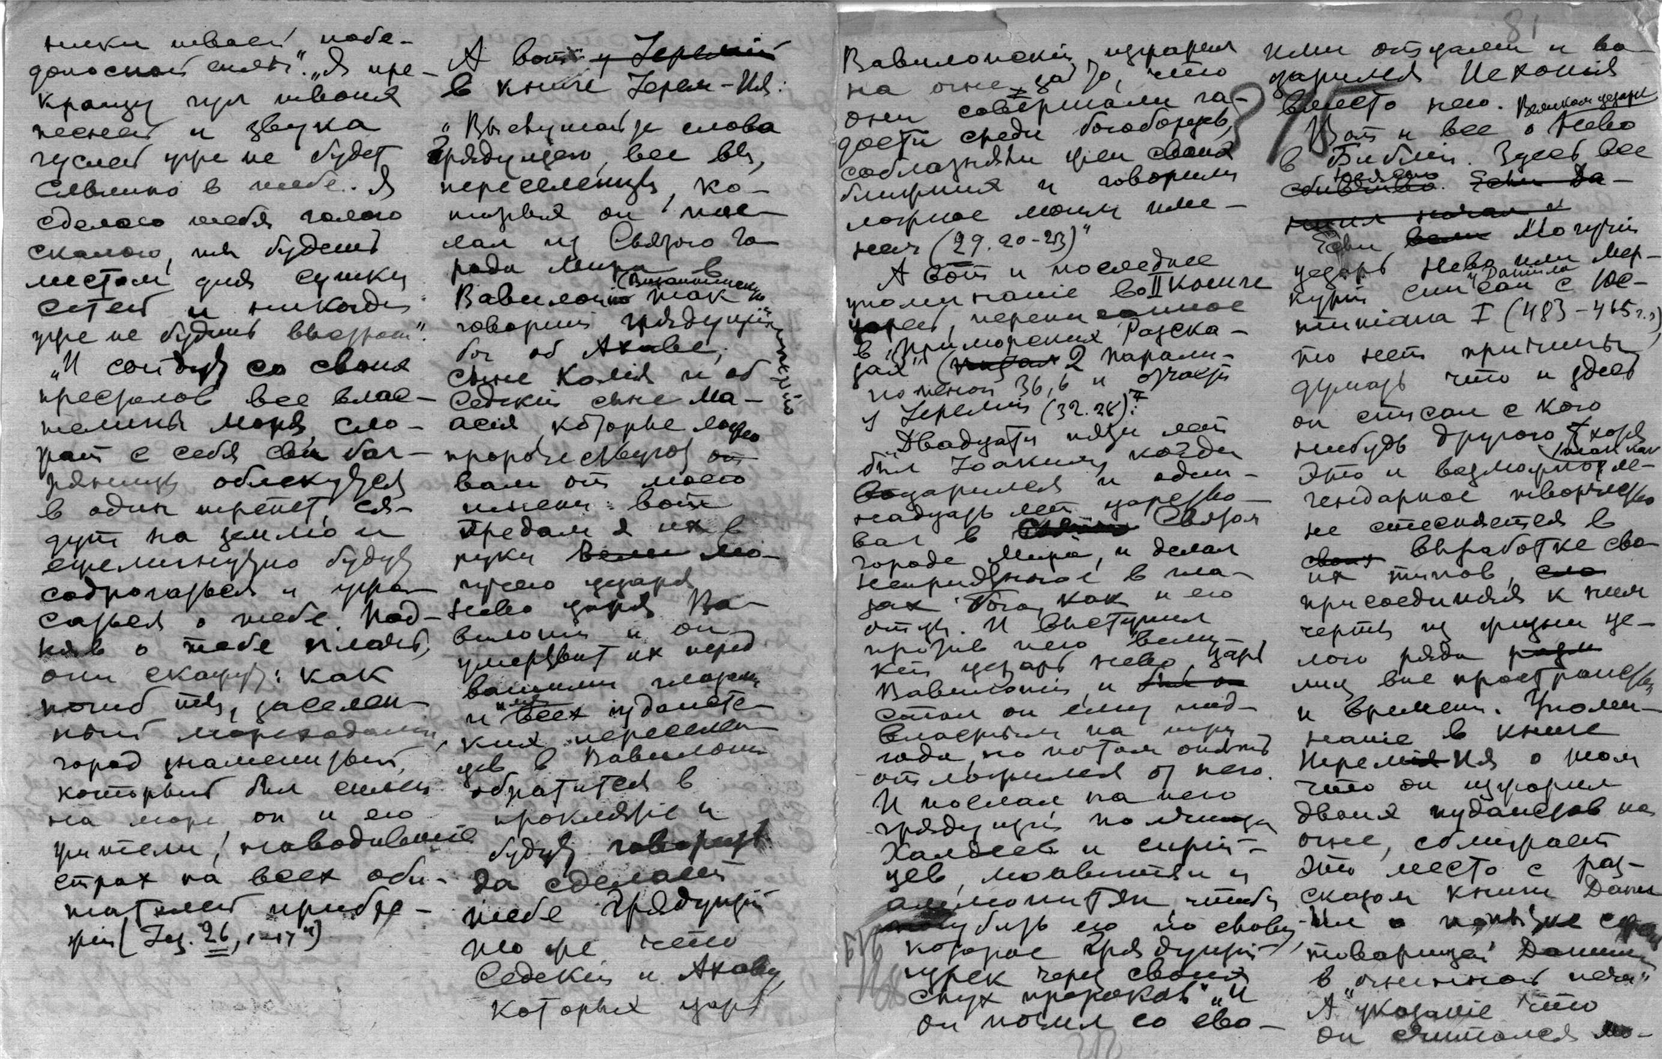 ники твоей побе-
доносной силы". „Я пре-
кращу гул твоих
песней и звука
гуслей уже не будет
слышно в тебе. Я
сделаю тебя голою
скалою, ты будешь
местом для сушки
сетей и никогда
уже не будешь
„И сойдут со своих
престолов все влас-
телины моря, сло-
жат с себя свои баг-
ряницы облекутся
в один трепет, ся-
дут на землю и
ежеминутно будут
содрогаться и ужа-
саться о тебе. Под-
няв о тебе плачь,
они скажут: как
погиб ты, заселен-
ный мореходами,
город знаменитый,
который был силен
на море он и его
жители, наводившие
страх на всех оби-
тателей прибре-
жья (Iез. 26, 1-17")
А вот у Iеремiи
в книге Iерем-Ия:
„Выслушайте слова
Грядущего, все вы,
переселенцы, ко-
торых он пос-
лал из Святого го-
рода Мира в
Вавилонию так
говорит грядущiй
бог об Ахаве,
сыне Колiя и об
Седекiи сыне Ма-
асiя, которые ложно
пророчествуют
вам от моего
имени: вот
предам я их в
руки Вели Мо-
гучего цезаря
Нево царя Ва-
вилонии и он
умертвит их перед
вашими глазами
и всех iудейс-
ких переселен-
цев в Вавилонии
обратится в
проклятье и
будут говорить
да сделает
тебе Грядущiй
то же что
Седекiи и Ахаву
которых царь
81
Вавилонскiй изжарил
на огне за то, что
они совершали га-
дости среди богоборцев,
соблазняли жен своих
ближних и говорили
ложное моим име-
нем (29. 20-23)"
А вот и последнее
упоминанiе во II книге
царей, переименованное
в „Приморских Разска-
зах" 2 Парали-
поменон 36, 6 и отчасти
у Iеремiи (32. 28):
„Двадцати пяти лет
был Iоаким, когда
воцарился и один-
надцать лет царство-
вал в Святом
городе Мира, и делал
неприятное в гла-
зах Бога, как и его
отцы. И выступил
против него вели-
кий цезарь Нево, царь
Вавилонiи, и
стал он ему под-
властным на три
года, но потом опять
отложился от него.
И послал на него
грядущiй полчища
Халдеев и сирiй-
цев, моавитян и
аммонитян чтобы
погубить его по слову,
которое Грядущiй
изрек через своих
слуг пророков". „И
он почил со сво-
375
ими отцами и во-
царился Iехонiя
вместо него.
Вот и все о Великом цезаре Нево
в Библiи. Здесь все
Если Могучiй
цезарь Нево или Мер-
курiй списан с Юс-
тинiана I (483-465 г.),
то нет причины
думать что и здесь
он списан с кого
нибудь другого, хотя
это и возможно так как ле-
гендарное творчество
не стесняется в
выработке сво-
их типов,
присоединяя к ним
черты из жизни це-
лого ряда
лиц вне пространства
и времени. Упоми-
нанiе в книге
Иремия о том
что он изжарил
двоих iудаистов на
огне, сближает
это место с раз-
сказом книги Дани-
ил о
товарищей Даниила
в „огненной печи"
А указанiе что
он считался мо-